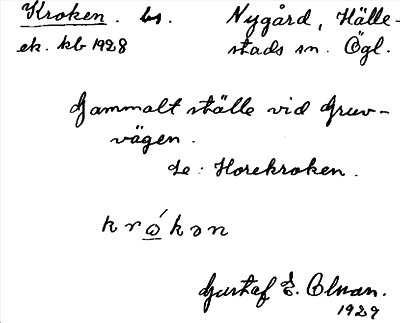 Kroken. bs. Nygård, Hälle-
ek. kb 1928 stads sn. Ögl.
Gammalt ställe vid Gruv-
vägen.
Se: Horekroken.
krώkən
Gustaf E. Olman.
1929